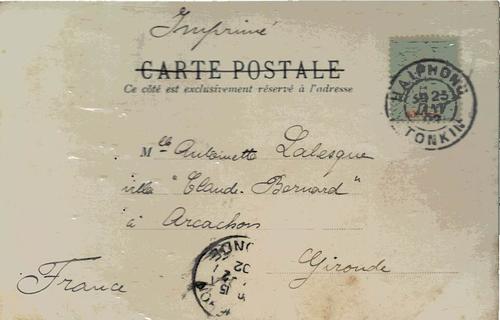 Imprimé
CARTE POSTALE
Ce côté est exclusivement réservé à l'adresse
HAIPHONG
25
TONKIN
Mlle Antoinette Lalesque
villa "Claude-Bernard"
à Arcachon
Gironde
France
02